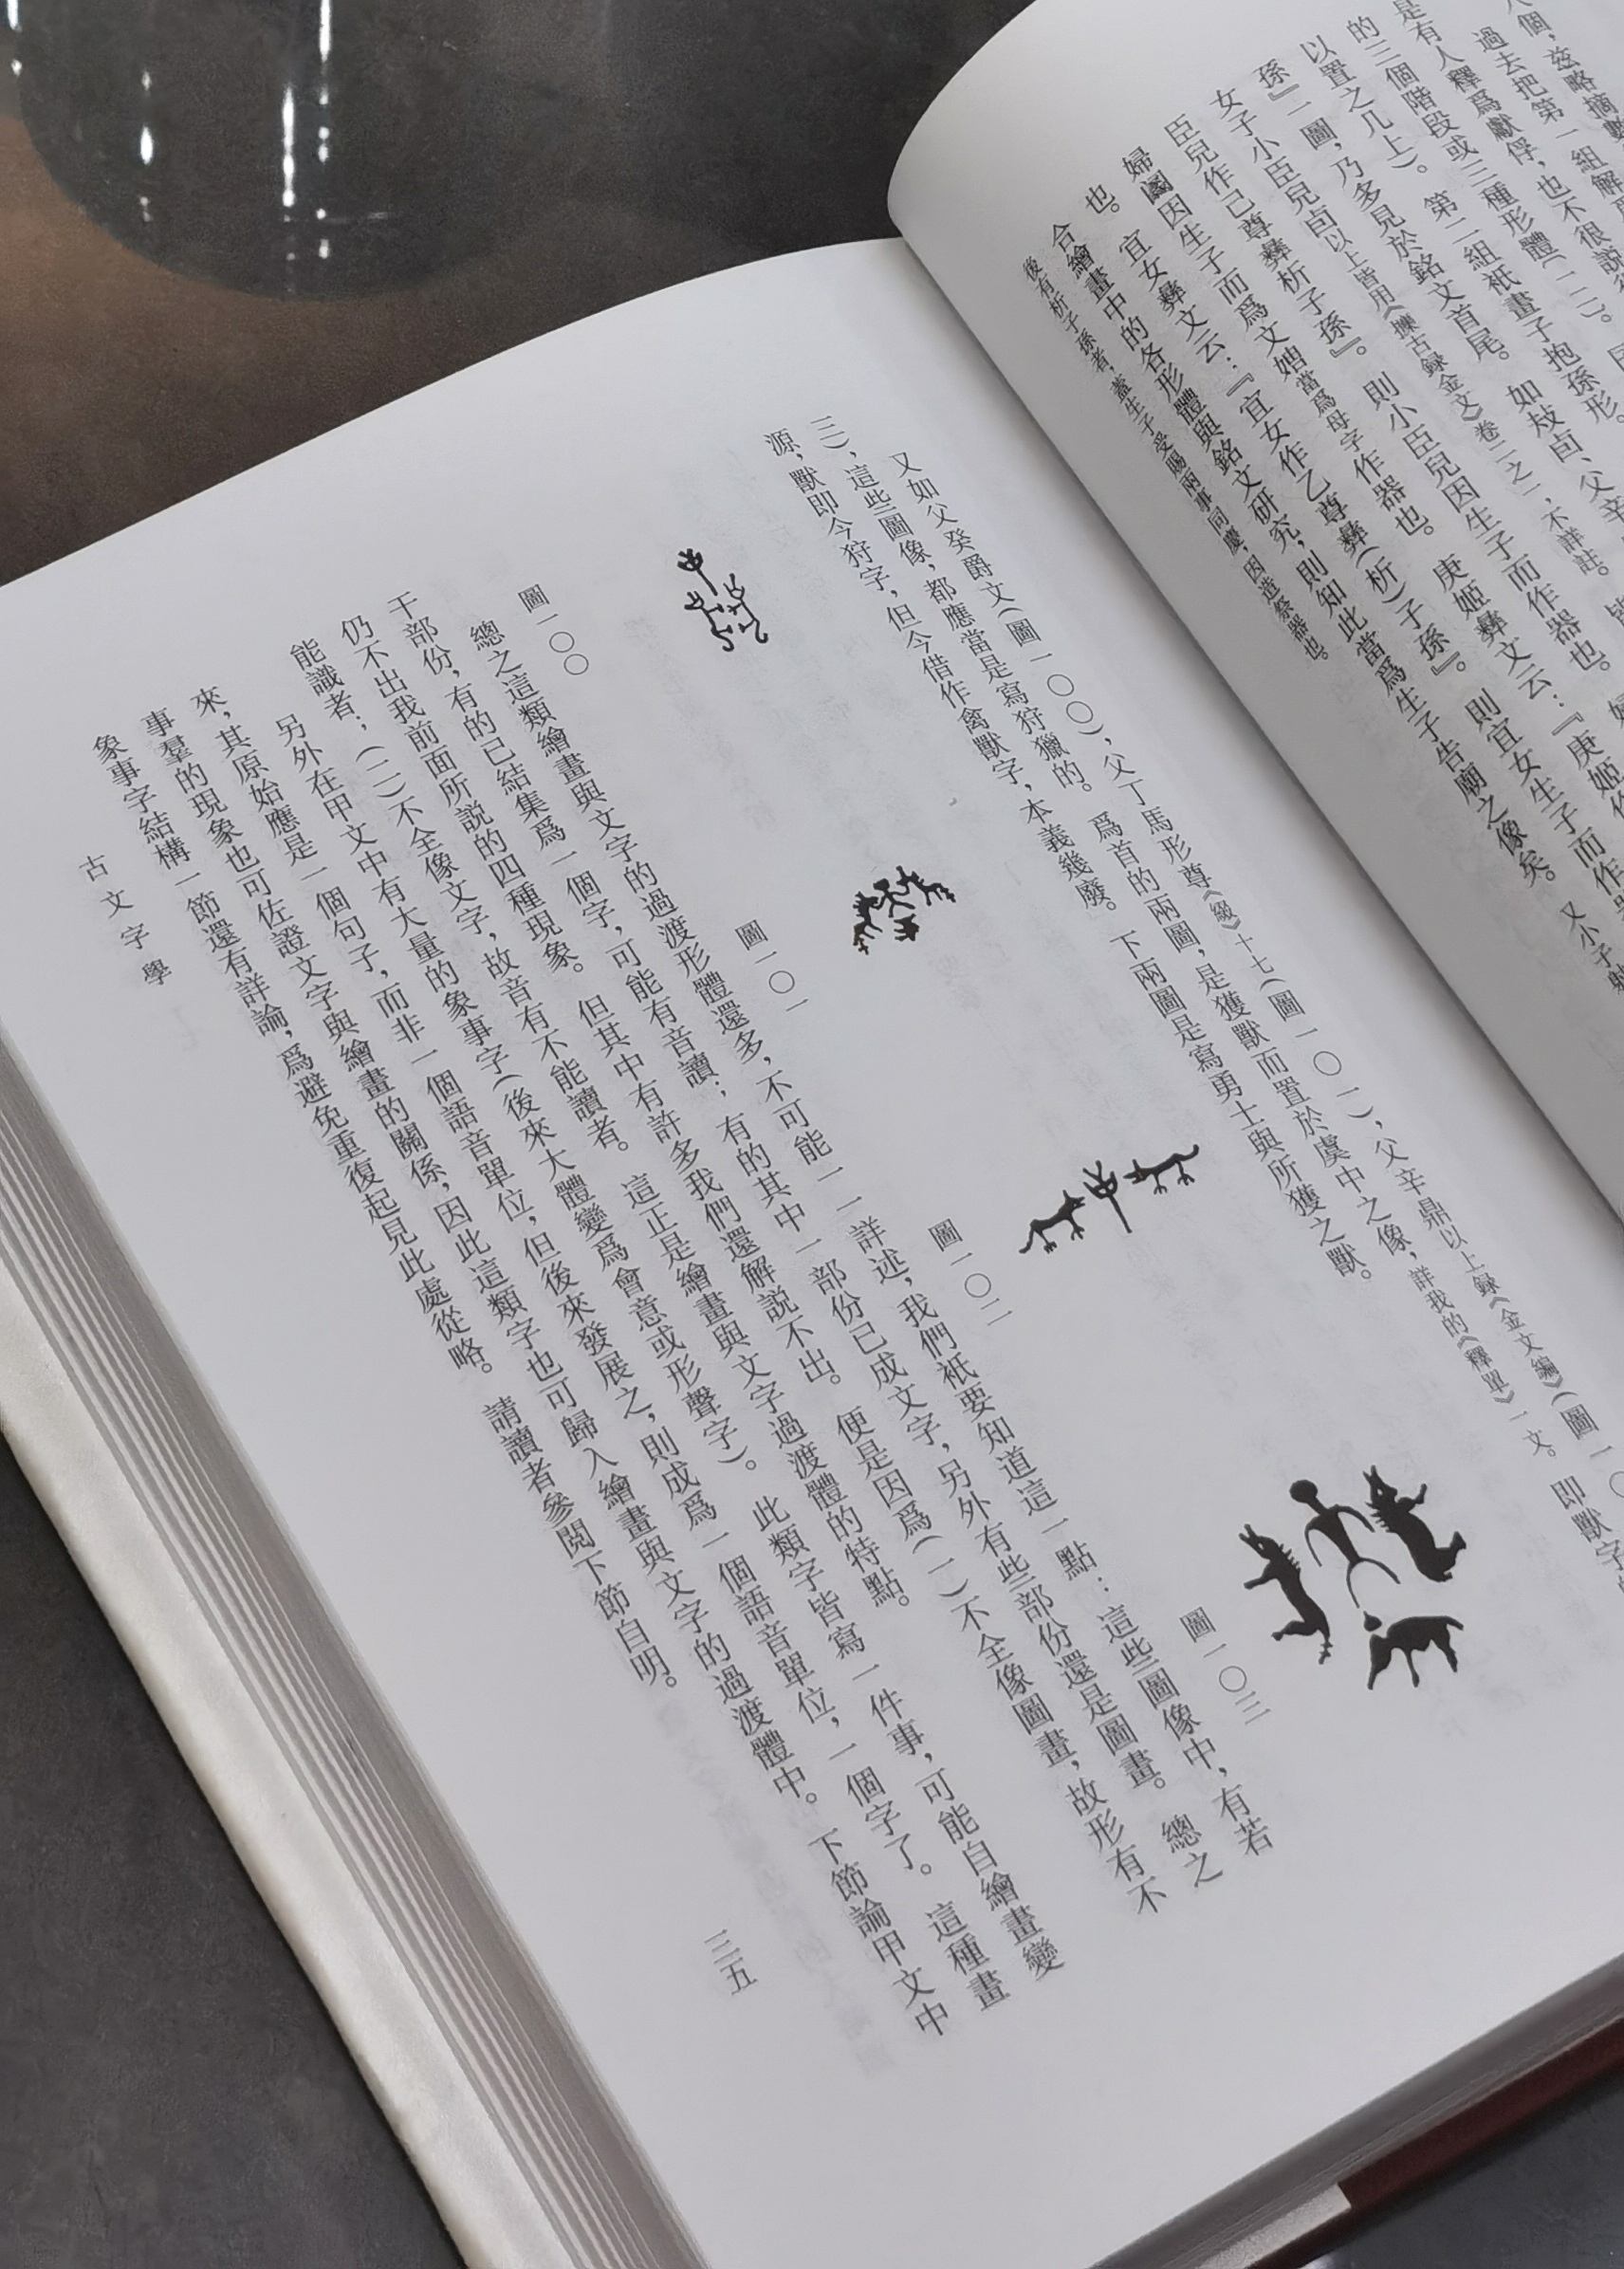 過去把第一組解
是有人釋爲獻俘，也不很說
的三個階段或三種形體(二)。
以置之几上)。第二組祇畫子抱孫形。
孫』二圖，乃多見於銘文首尾。如㪔卣、父辛
女子小臣兒卣以上皆用《攈古録金文》卷二之一，不詳註。
臣兒作己尊彝析子孫』。則小臣兒因生子而作器也。
婦闔因生子而爲文媘當爲母字作器也。庚姬彝文云：『庚姬作
也。宜女彝文云：『宜女作乙尊彝(析)子孫』。則宜女生子而作
合繪畫中的各形體與銘文研究，則知此當爲生子告廟之像矣。又小子射
後有析子孫者，蓋生子受賜兩事同慶，因造祭器也。
又如父癸爵文(圖一〇〇)，父丁馬形尊《綴》十七(圖一〇一)，父辛鼎以上録《金文編》(圖一〇
三)，這些圖像，都應當是寫狩獵的。爲首的兩圖，是獲獸而置於虞中之像，詳我的《釋單》一文。即獸字
源，獸即今狩字，但今借作禽獸字，本義幾廢。下兩圖是寫勇士與所獲之獸。
圖一〇〇
圖一〇一
圖一〇二
圖一〇三
總之這類繪畫與文字的過渡形體還多，不可能一一詳述，我們衹要知道這一點：這些圖像中，有若
干部份，有的已結集爲一個字，可能有音讀；有的其中一部份已成文字，另外有些部份還是圖畫。總之
仍不出我前面所說的四種現象。但其中有許多我們還解説不出。便是因爲(一)不全像圖畫，故形有不
能識者；(二)不全像文字，故音有不能讀者。這正是繪畫與文字過渡體的特點。
另外在甲文中有大量的象事字(後來大體變爲會意或形聲字)。此類字皆寫一件事，可能自繪畫變
來，其原始應是一個句子，而非一個語音單位，但後來發展之，則成爲一個語音單位，一個字了。這種畫
事羣的現象也可佐證文字與繪畫的關係，因此這類字也可歸入繪畫與文字的過渡體中。下節論甲文中
象事字結構一節還有詳論，爲避免重復起見此處從略。請讀者參閲下節自明。
古文字學
三五